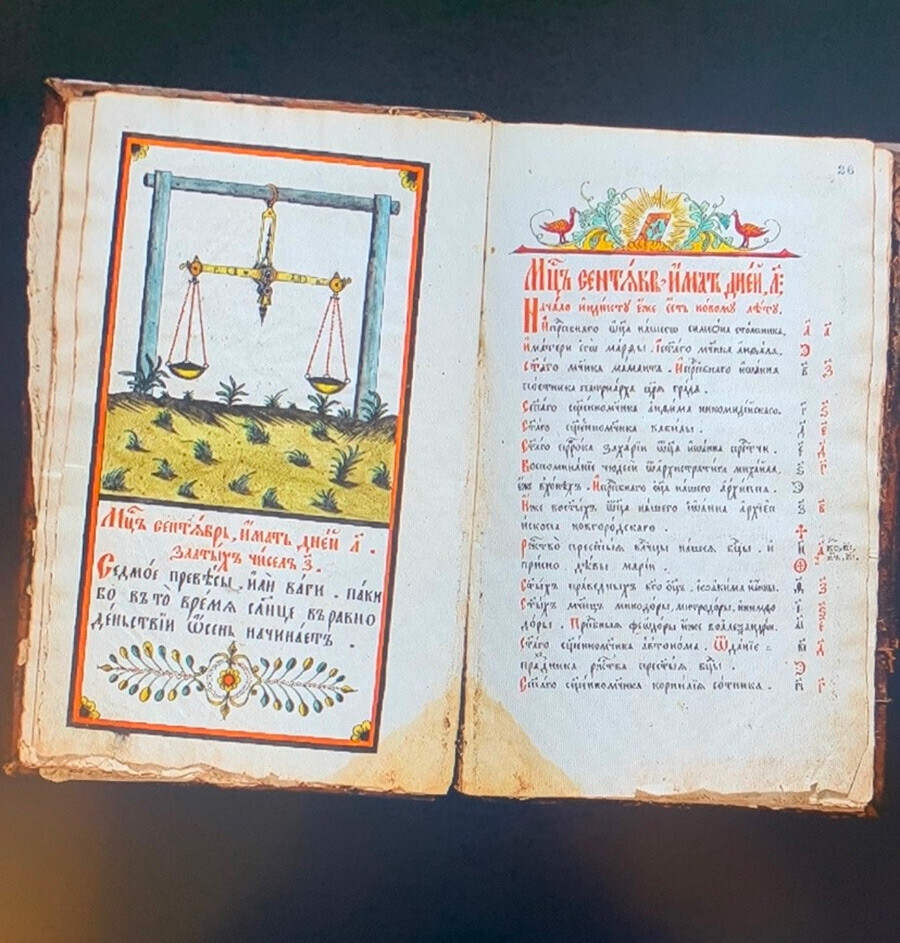 Мц҃ъ сентѧ́врь, и҆́мать дне́й л҃.
златы́хъ чи́селъ з҃.
Седмо́е превѣ́сы, и҆лѝ ва́ги. па́ки
бо въ то̀ вре́мѧ сл҃нце въ равно
де́ньствїи ѻ҆́сень начина́етъ.
26
Мц҃ъ сентѧ́вр. и҆́мать дне́й, л҃:
Нача́ло и҆ндикту е҆́же е҆сть но́вому лѣ́ту.
И҆ прпⷣбнаго ѻ҆ц҃а̀ на́шегѡ симеѡ́на сто́лпника, а҃
и҆ ма́тери є҆гѡ̀ ма́рѳы. Ст҃а́гѡ мч҃ника а҆иѳа́ла.
Ст҃а́гѡ мч҃ника мама́нта. И҆ прпⷣбнаго і҆ѡа́нна в҃
по́стника патрїа́рха цр҃ѧ гра́да.
Ст҃а́гѡ сщ҃енномч҃ника а҆нѳі́ма никомиді́йскаго. г҃
Ст҃а́гѡ сщ҃енномч҃ника вави́лы. д҃
Ст҃а́гѡ прⷪ҇ро́ка заха́рїи ѻ҆ц҃а̀ і҆ѡа́нна прⷣте́чи. є҃
Воспомина́нїе чюдесѝ ѿ а҆рхистрати́га михаи́ла, ѕ҃
и҆́же въ хонѣ́хъ. И҆ прпⷣбнаго ѻ҆ц҃а̀ на́шего а҆рхи́ппа.
И҆́же во ст҃ы́хъ ѻ҆ц҃а̀ на́шего і҆ѡа́нна а҆рхїеп з҃
и҆́скопа новгоро́дскаго.
Ржⷭ҇тво̀ прест҃ы́ѧ влⷣчцы на́шеѧ бцⷣы. и҆ и҃
присно дѣ́вы марі́и.
Ст҃ы́хъ пра́ведныхъ бг҃оѻц҃ъ, і҆ѡаки́ма и҆ а҆́нны. ѳ҃
Ст҃ы́хъ мч҃ницъ минодо́ры, митродо́ры, и҆ нимфо і҃
до́ры. Прпⷣбныѧ ѳеодо́ры и҆́же во а҆леѯандрі́и. а҃і
Ст҃а́гѡ сщ҃енномч҃ника а҆втоно́ма. Ѿда́нїе в҃і
пра́здника ржⷭ҇тва̀ прест҃ы́ѧ бцⷣы.
Ст҃а́гѡ сщ҃енномч҃ника корни́лїѧ со́тника. г҃і